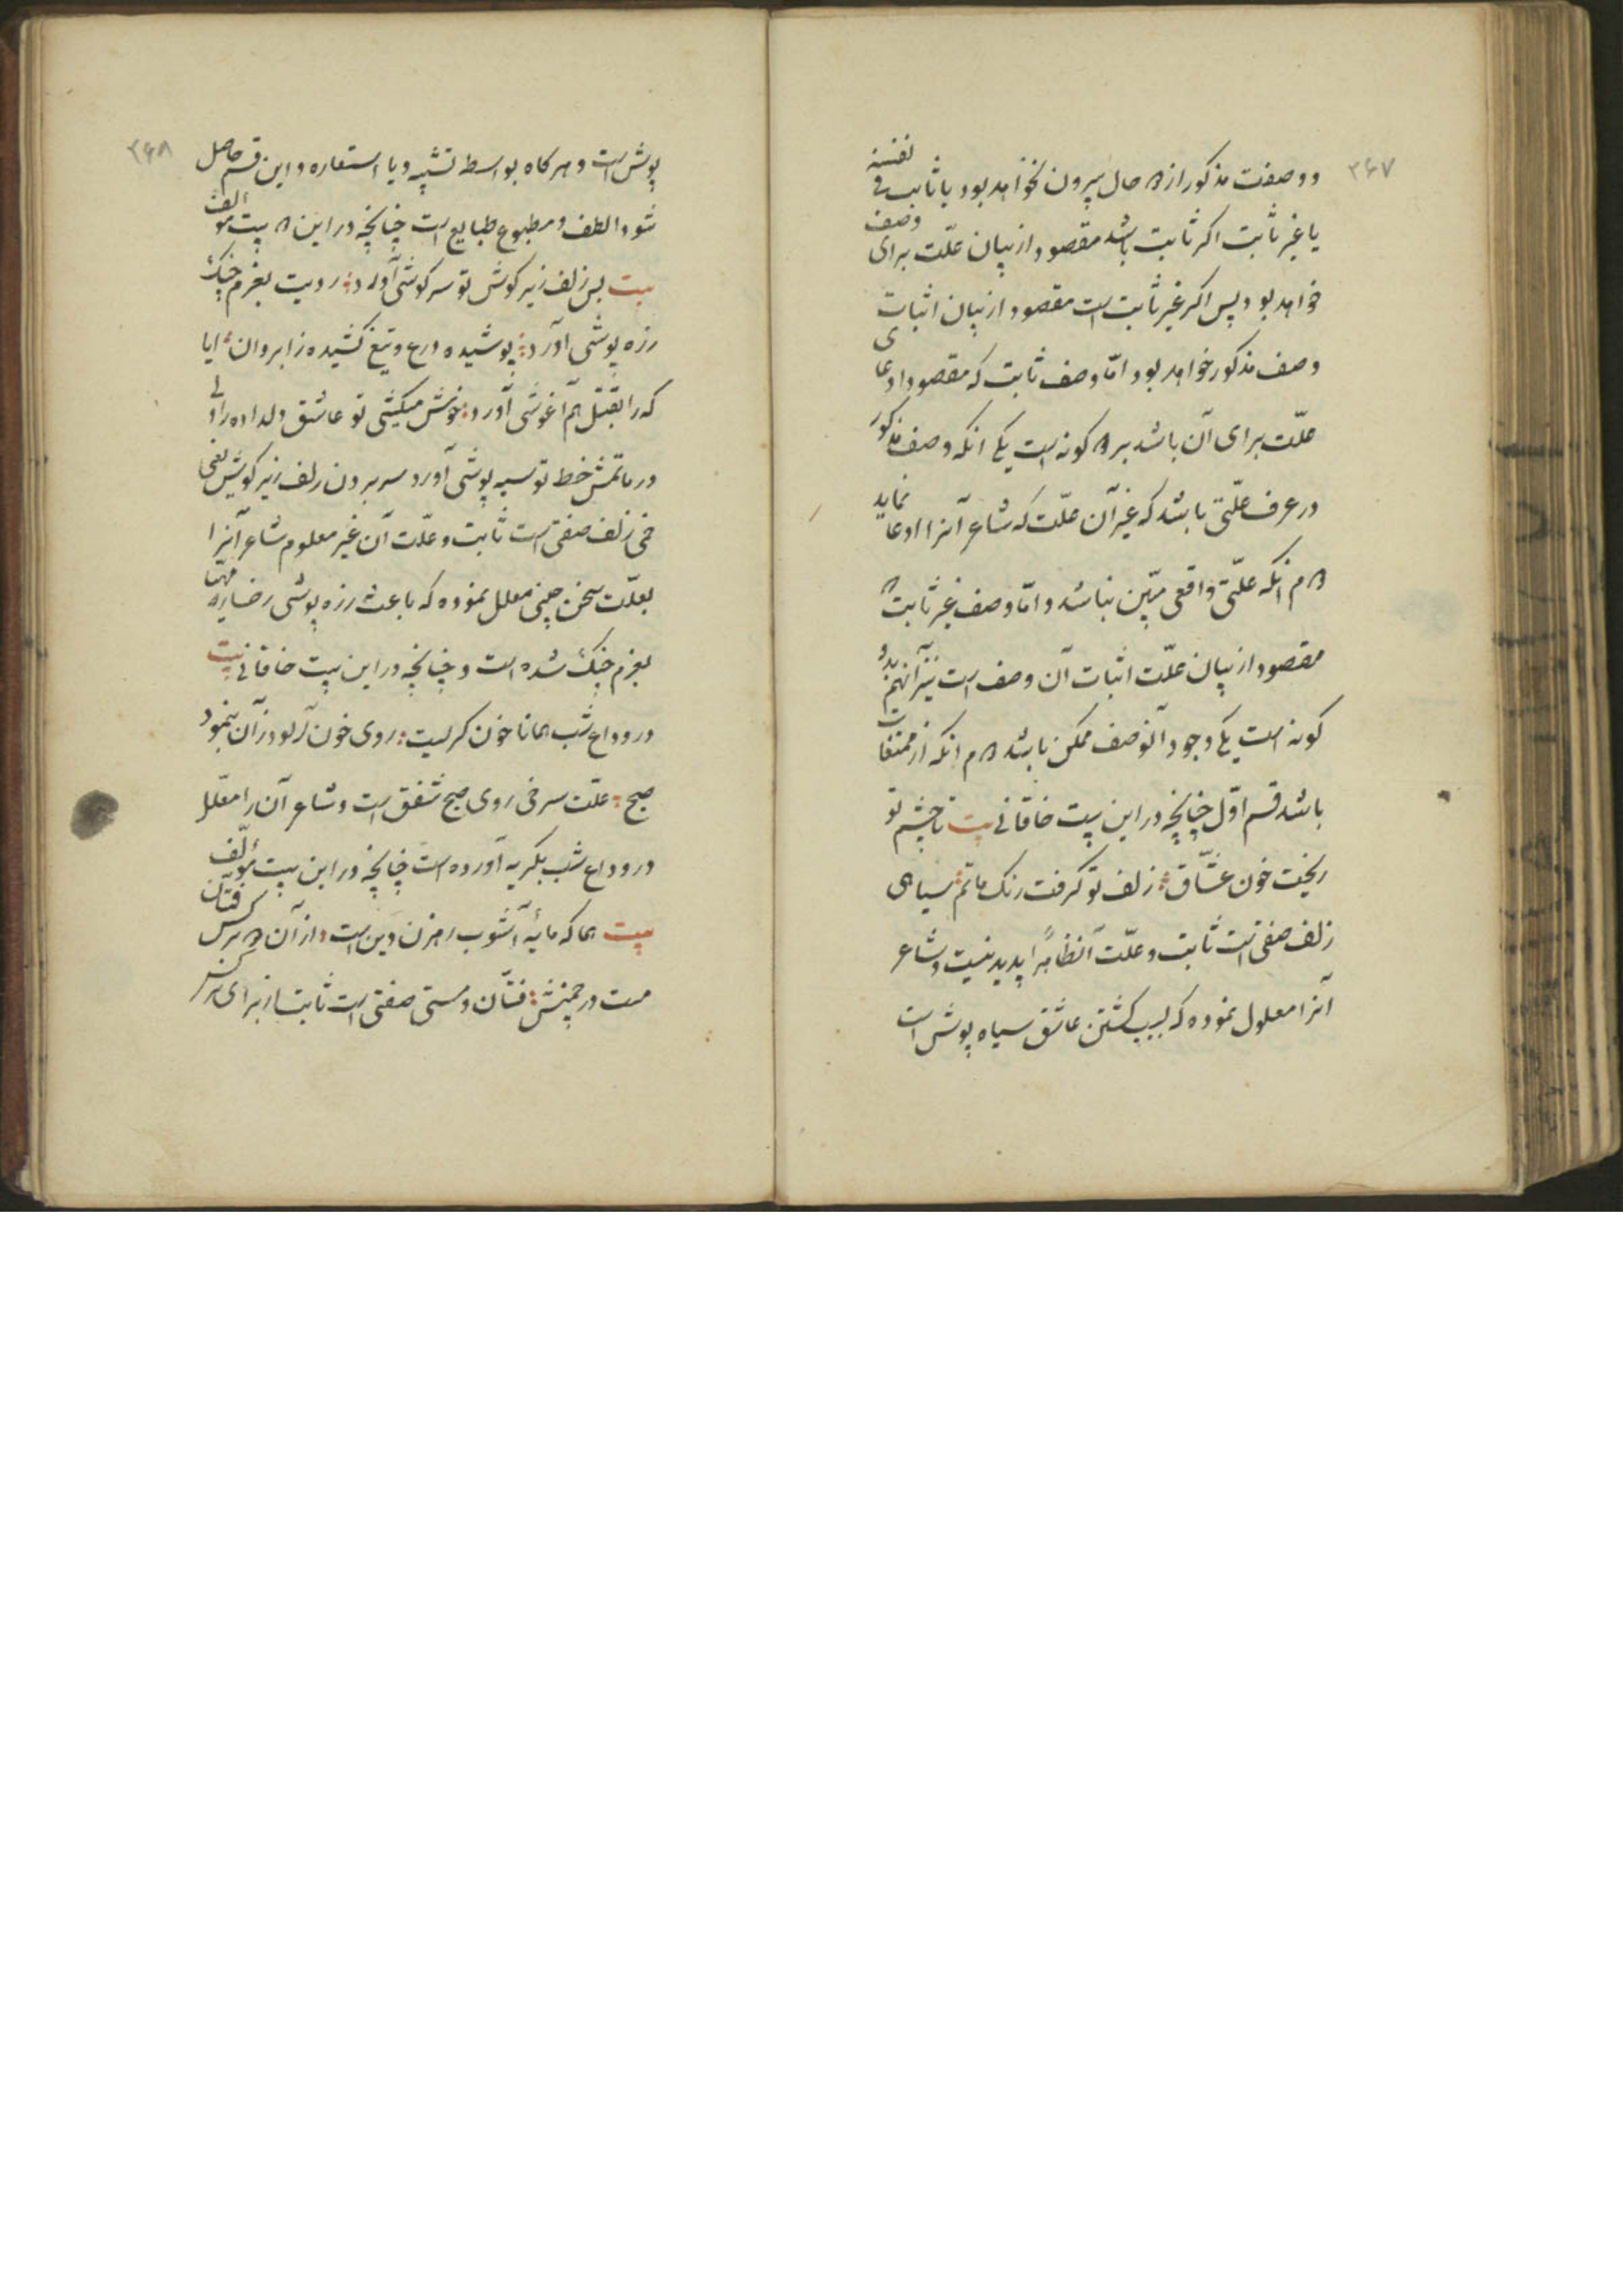 ۳۶۷
و وصفت مذکور از ۲ حال بیرون نخواهد بود یا ثابت فی نفسه
یا غیر ثابت اکر ثابت باشد مقصود از بیان علّت برای وصف
خواهد بود پس اکر غیر ثابت است مقصود از بیان اثبات
وصف مذکور خواهد بود امّا وصف ثابت که مقصود ادعای
علّت برای آن باشد بر ۲ کونه است یکی انکه وصف مذکور
در عرف علّتی باشد که غیر آن علّت که شاعر آنرا ادعا نماید
۲ م انکه علّتی واقعی مبّین نباشد و امّا وصف غیر ثابت که
مقصود از بیان علّت اثبات آن وصف است نیز آنهم بدو
کونه است یکی وجود آنوصف ممکن باشد ۲ م انکه از ممتنعات
باشد قسم اوّل چنانچه در این بیت خاقانی بیت تا چشم تو
ریخت خون عشّاق ؛ زلف تو کرفت رنک ماتم ؛ سیاهی
زلف صفتی است ثابت و علّت آنظاهراً پدید نیست و شاعر
آنرا معلول نموده که بسبب کشتن عاشق سیاه پوش است
۳۶۸
پوش است و هر کاه بواسطه تشبیه و یا استعاره و این قسم حاصل
شود الطف و مطبوع طبایع است چنانچه در این ۲ بیت مؤلف
بیت بس زلف زیر کوش تو سر کوشی آورد ؛ رویت بعزم جنک
زره پوشی آورد ؛ پوشیده درع و تیغ کشیده ز ابروان ؛ ایا
که را بقتل هم آغوشی آورد ؛ خونش میکشی تو عاشق دلداده را ولی
در ماتمش خط تو سیه پوشی آورد سر بردن زلف زیر کوش یعنی
خمی زلف صفتی است ثابت و علّت آن غیر معلوم شاعر آنرا
بعلّت سخن چینی معلل نموده که باعث زره پوشی رخساره
بعزم جنک شده است و چنانچه در این بیت خاقانی بیت
در وداع شب همانا خون کریست ؛ روی خون آلود زان بنمود
صبح ؛ علّت سرخی روی صبح شفق است و شاعر آن را معلّل
در وداع شب بکریه آورده است چنانچه در این بیت مؤلّف
بیت هما که مایه آشوب رهزن دین است ؛ از آن ۲ نرکس فتان
مست در چمنش ؛ فتّان و مستی صفتی است ثابت از برای نرکس